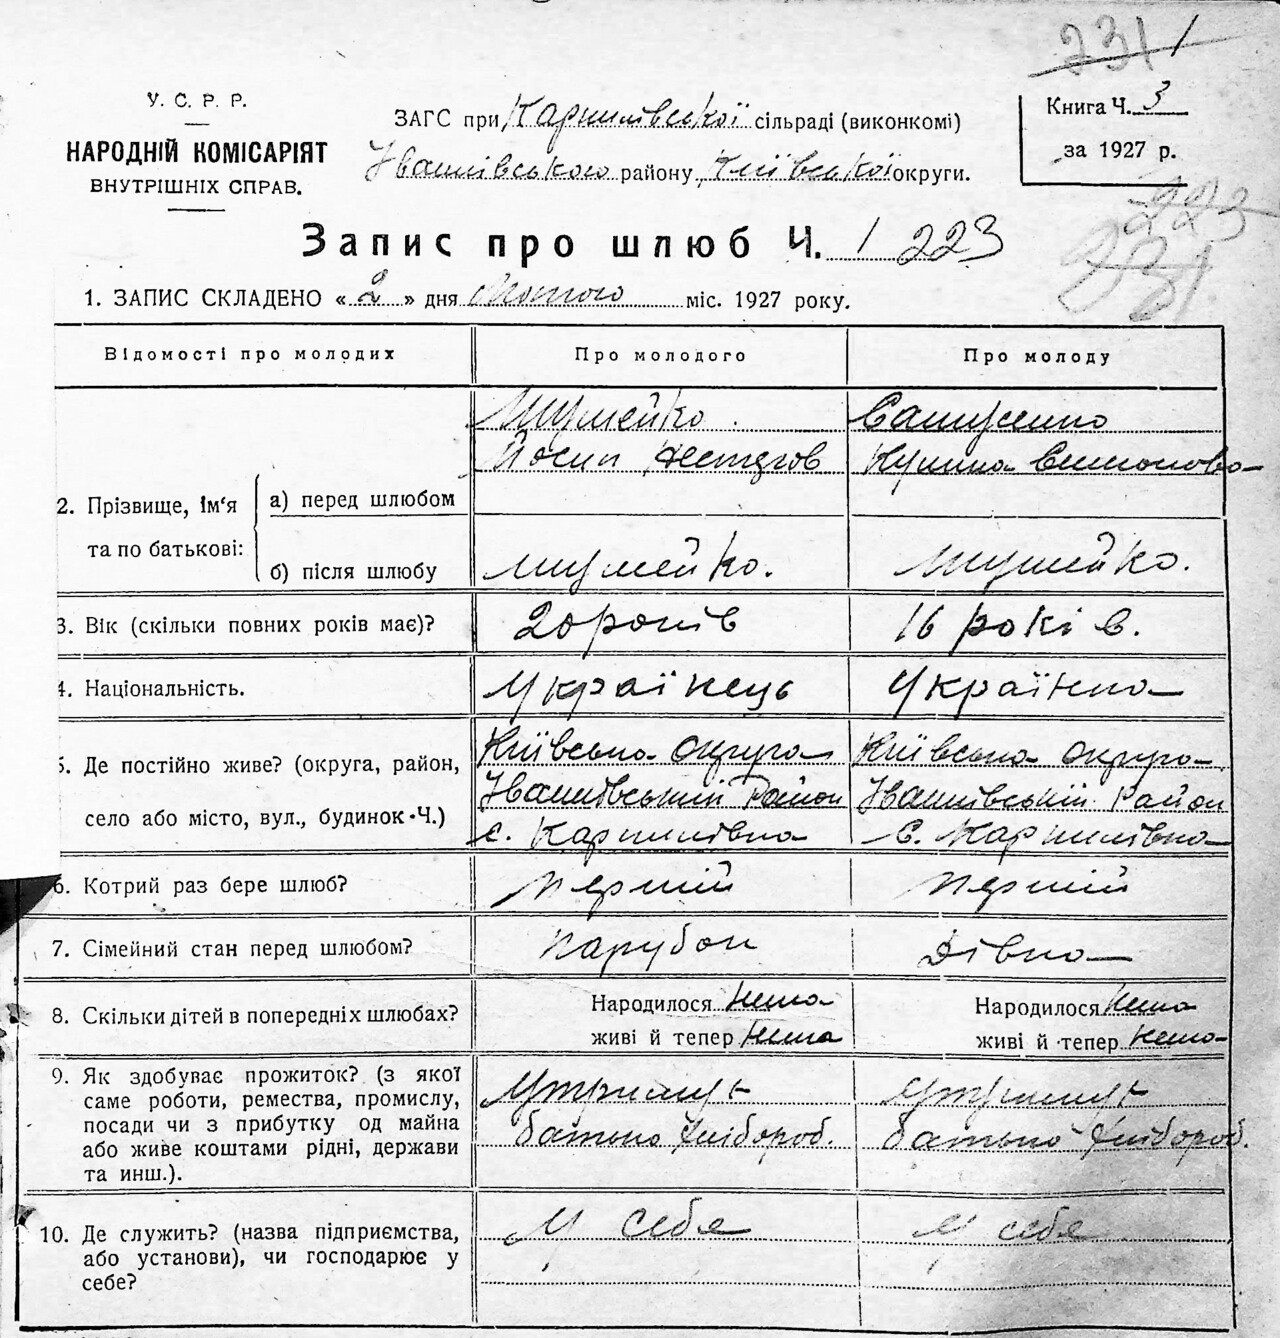 231 1
У. С. Р. Р.
НАРОДНІЙ КОМІСАРІЯТ
ВНУТРІШНІХ СПРАВ.
ЗАГС при Карпилівської сільраді (виконкомі)
Іванківського району, Київської округи.
Книга Ч. 3
за 1927 р.
223
231
Запис про шлюб Ч. 1 223
1. ЗАПИС СКЛАДЕНО « 2 » дня Лютого міс. 1927 року.
Відомості про молодих Про молодого Про молоду
2. Прізвище, ім'я та по батькові:
а) перед шлюбом
Шумейко.
Йосип Нестеров
б) після шлюбу
Шумейко. Шумейко.
3. Вік (скільки повних років має)? 20 років 16 років.
4. Національність. Українець Українка
5. Де постійно живе? (округа, район,
село або місто, вул., будинок Ч.)
Київська округа Київська округа
Іванківський Район Іванківській Район
с. Карпилівка с. Карпилівка
6. Котрий раз бере шлюб? Перший Перший
7. Сімейний стан перед шлюбом? Парубок Дівка
8. Скільки дітей в попередніх шлюбах? Народилося Нема Народилося Нема
живі й тепер Нема живі й тепер Нема
9. Як здобуває прожиток? (з якої
саме роботи, ремества, промислу,
посади чи з прибутку од майна
або живе коштами рідні, держави
та инш.).
Утримує Утримує
батько Хлібороб. батько Хлібороб.
10. Де служить? (назва підприємства,
або установи), чи господарює у
себе?
У себе У себе